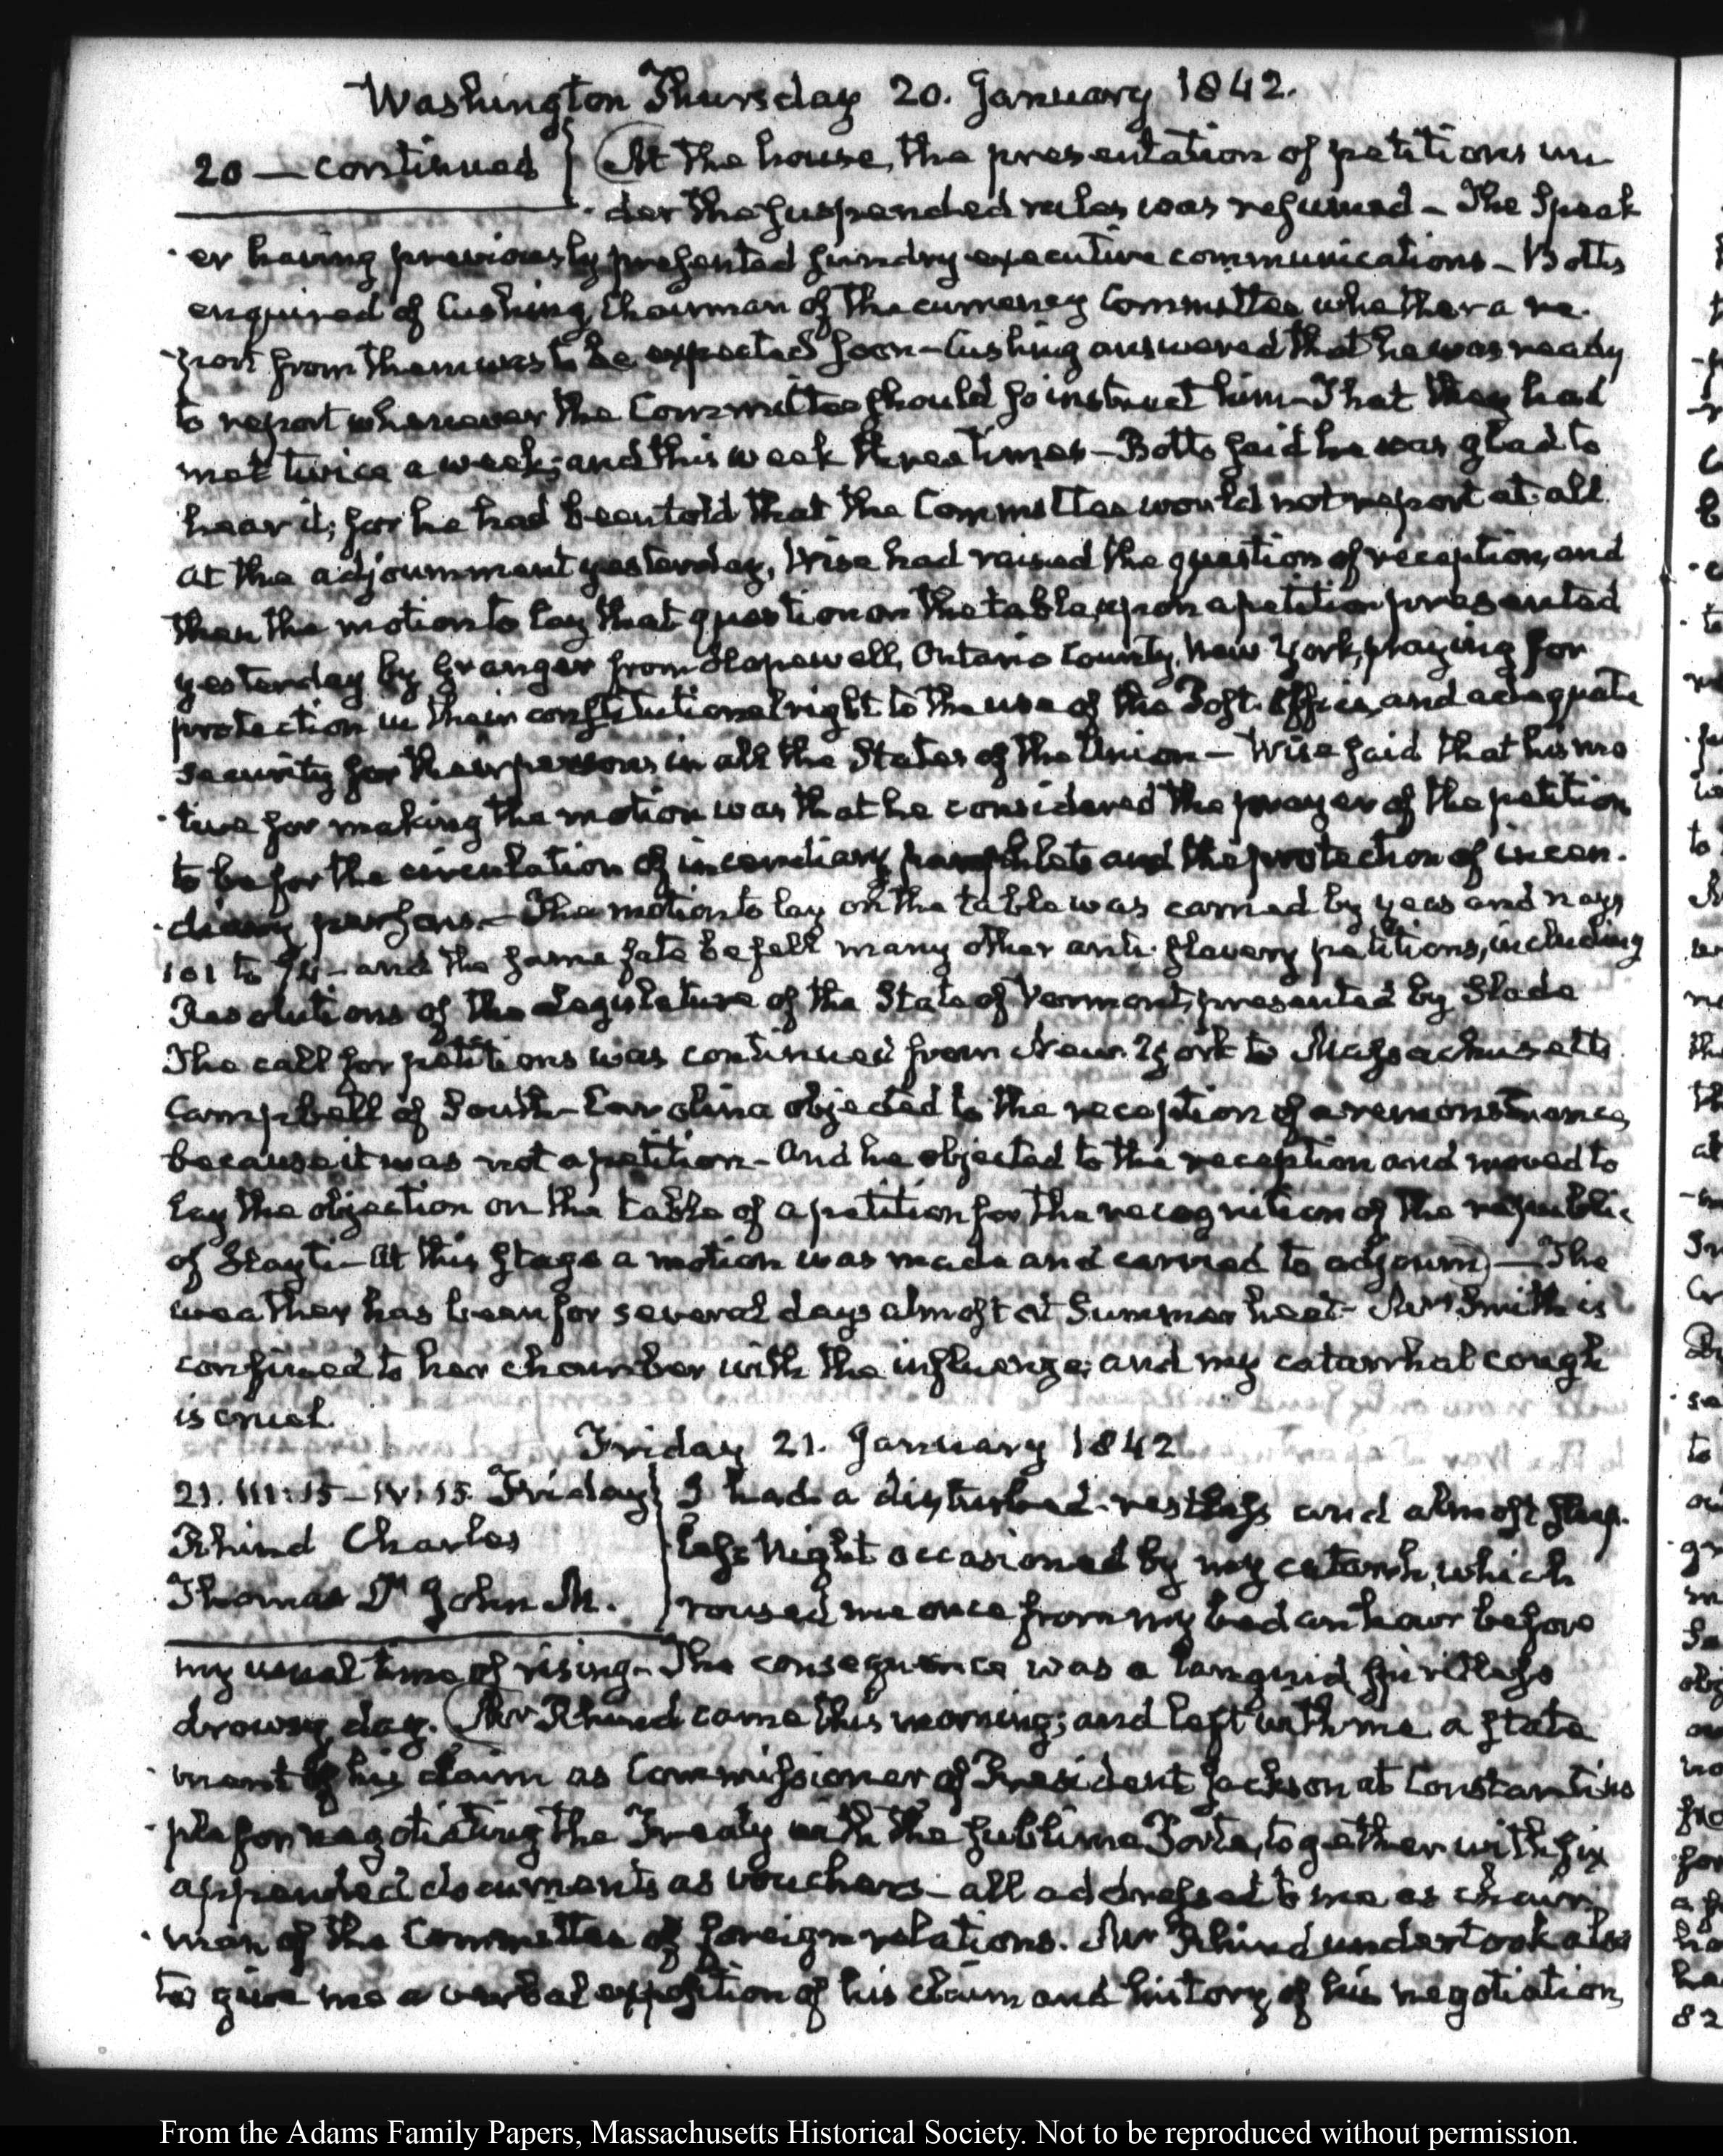 Washington Thursday 20. January 1842.
20 — continued } At the house, the presentation of petitions un
der the suspended rules was resumed – The Speak
er having previously presented sundry executive communications – Botts
enquired of Cushing, Chairman of the currency Committee whether a re-
port from them was to be expected soon – Cushing answered that he was ready
to report whenever the Committee should so instruct him – That they had
met twice a week; and this week three times – Botts said he was glad to
hear it; for he had been told that the Committee would not report at all
At the adjournment yesterday, Wise had raised the question of reception, and
then the motion to lay that question on the table, upon a petition presented
yesterday by Granger from Hopewell, Ontario County, New York, praying for
protection in their constitutional right to the use of the Post-Office, and adequate
security for their persons in all the States of the Union – Wise said that his mo
tive for making the motion was that he considered the prayer of the petition
to be for the circulation of incendiary pamphlets and the protection of incen-
diary persons. – The motion to lay on the table was carried by yeas and nays
101 to – and the same fate befell many other anti-slavery petitions, including
Resolutions of the Legislature of the State of Vermont, presented by Slade
The call for petitions was continued from New York to Massachusetts
Campbell of South-Carolina objected to the reception of a remonstrance,
because it was not a petition – And he objected to the reception and moved to
lay the objection on the table of a petition for the recognition of the republic
of Hayti – At this stage a motion was made and carried to adjourn) – The
weather has been for several days almost at Summer heat – Mrs Smith is
confined to her chamber with the influenza; and my catarrhal cough
is cruel.
Friday 21. January 1842
21. III:15 – IV:15. Friday } I had a disturbed, restless and almost sleep-
Rhind Charles
less Night occasioned by my catarrh, which
Thomas Dr John M.
roused me once from my bed an hour before
my usual time of rising – The consequence was a languid spiritless
drowsy day. (Mr Rhind came this morning; and left with me a state
ment of his claim as Commissioner of President Jackson at Constantino
ple for negotiating the Treaty with the Sublime Porte, together with six
appended documents as vouchers – all addressed to me as chair
man of the Committee of foreign relations. Mr Rhind undertook also
to give me a verbal exposition of his claim and history of his negotiation,
From the Adams Family Papers, Massachusetts Historical Society. Not to be reproduced without permission.